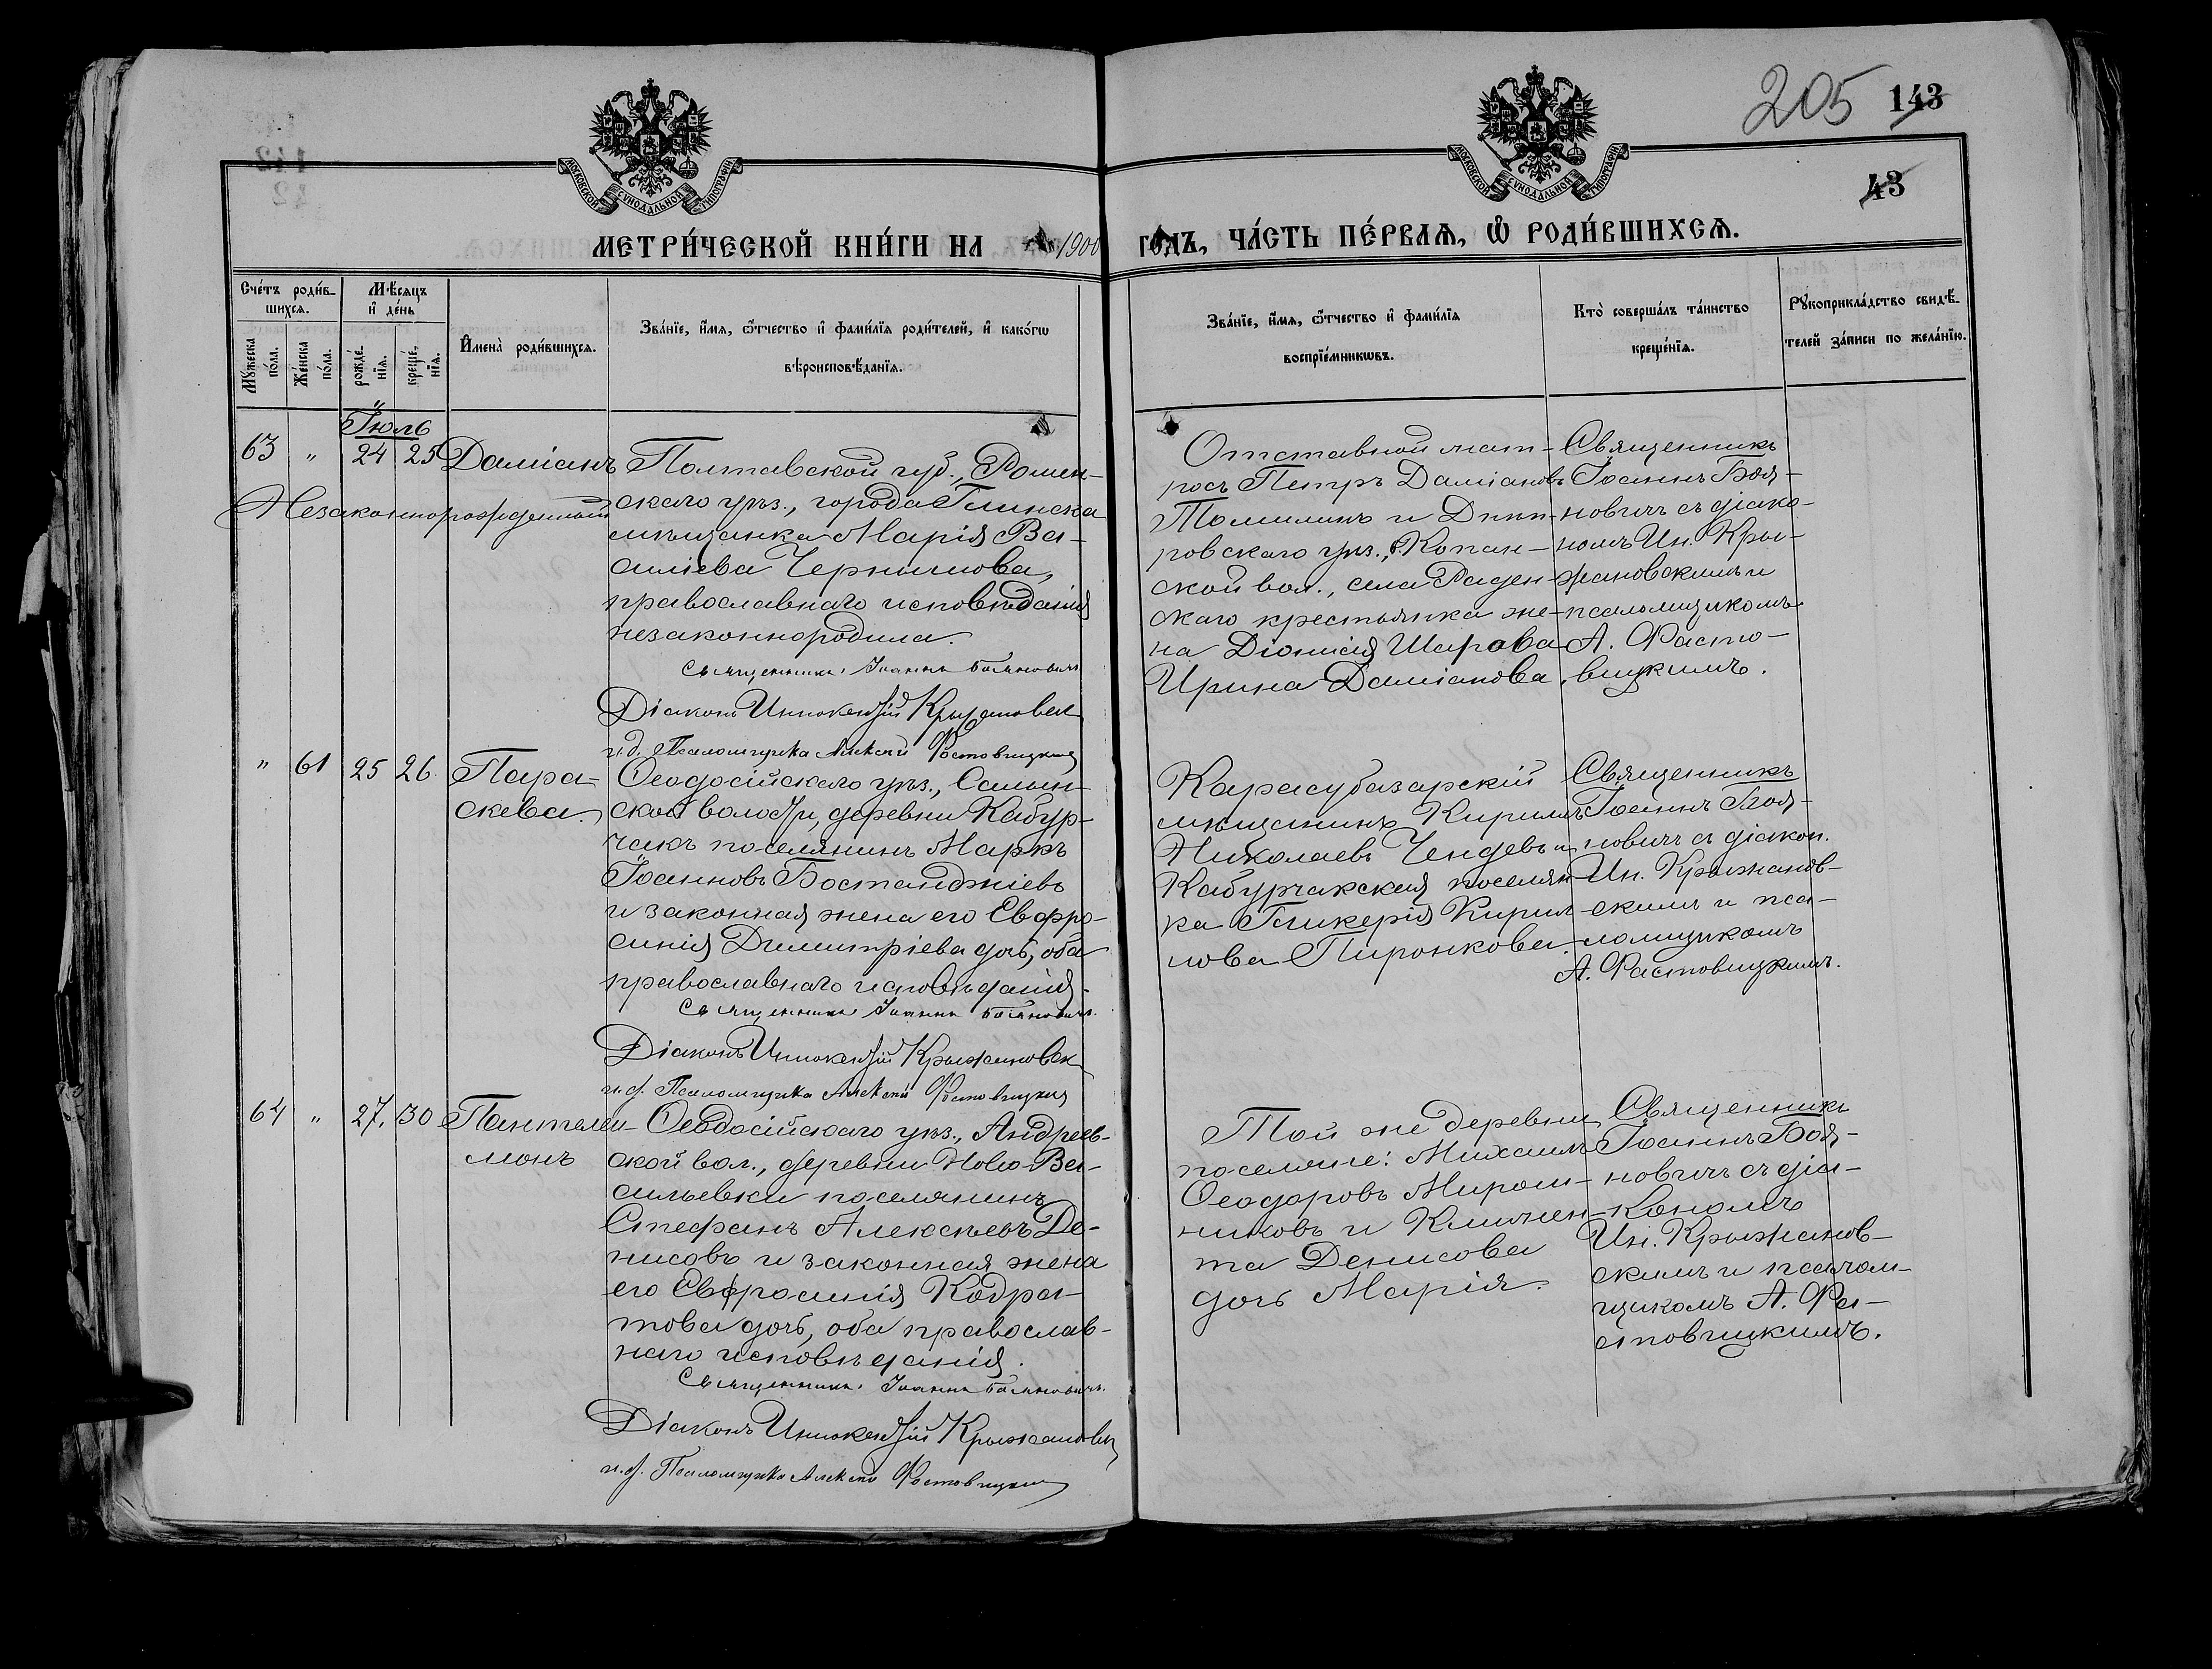 205 143
43
МОСКОВСКОЙ СУНОДАЛЬНОЙ ТИПОГРАФІИ
МОСКОВСКОЙ СУНОДАЛЬНОЙ ТИПОГРАФІИ
МЕТРИ́ЧЕСКОЙ КНИ́ГИ НА 1900 ГОДЪ, ЧА́СТЬ ПЕ́РВАѦ, Ѡ҆ РОДИ́ВШИХСѦ.
Сче́тъ роди́в-
шихсѧ.
Мꙋ́жеска по́ла.
Же́нска по́ла.
Мѣ́сѧцъ
и҆ де́нь
рожде́-
нїѧ.
креще́-
нїѧ.
И҆мена̀ роди́вшихсѧ.
Зва́нїе, и҆́мѧ, ѻ҆́тчество и҆ фами́лїѧ роди́телей, и҆ како́гѡ
вѣроисповѣ́данїѧ.
Зва́нїе, и҆́мѧ, ѻ҆́тчество и҆ фами́лїѧ
воспрїе́мникѡвъ.
Кто̀ соверша́лъ та́инство
креще́нїѧ.
Рꙋкоприкла́дство свидѣ́-
телей за́писи по жела́нїю.
Іюль
63 " 24 25 Даміанъ
Незаконнорожденный
Полтавской губ., Ромен-
скаго уѣз., города Глинска
мѣщанка Марія Ва-
силіева Чернышова,
православнаго исповѣданія
незаконнородила.
Священникъ Іоаннъ Бояновичъ
Діаконъ Иннокентій Крыжановск
и.д. Псаломщика Алексѣй Фастовицкій
Отставной мат-
росъ Петръ Даміановъ
Томилинъ и Днѣп-
ровскаго уѣз., Копан-
ской вол., села Раден-
скаго крестьянка же-
на Діонисія Шарова
Ирина Даміанова.
Священникъ
Іоаннъ Боя-
новичъ съ діако-
номъ Ин. Кры-
жановскимъ и
псаломщикомъ
А. Фасто-
вицкимъ.
" 61 25 26. Пара-
скева.
Ѳеодосійскаго уѣз., Салын-
ской волости, деревни Кабур-
чакъ поселянинъ Маркъ
Іоанновъ Бостанджіевъ
и законная жена его Евфро-
синія Димитріева дочь, оба
православнаго исповѣданія.
Священникъ Іоаннъ Бояновичъ.
Діаконъ Иннокентій Крыжановск
и.д. Псаломщика Алексѣй Фастовицкій
Карасубазарскій
мѣщанинъ Кириллъ
Николаевъ Чендевъ и
Кабурчакская поселян-
ка Гликерія Кирил-
лова Пиронкова.
Священникъ
Іоаннъ Боя-
новичъ съ діакон.
Ин. Крыжанов-
скимъ и пса-
ломщикомъ
А. Фастовицкимъ.
64 " 27. 30 Пантелеи-
монъ
Ѳеодосійскаго уѣз., Андреев-
ской вол., деревни Ново-Ва-
сильевки поселянинъ
Стефанъ Алексѣевъ Де-
нисовъ и законная жена
его Евфросинія Кодра-
това дочь, оба православ-
наго исповѣданія.
Священникъ Іоаннъ Бояновичъ.
Діаконъ Иннокентій Крыжановск
и.д. Псаломщика Алексѣй Фастовицкій
Той же деревни
поселяне: Михаилъ
Ѳеодоровъ Мирош-
никовъ и Климен-
та Денисова
дочь Марія.
Священникъ
Іоаннъ Боя-
новичъ съ діа-
кономъ
Ин. Крыжанов-
скимъ и псалом-
щикомъ А. Фа-
стовицкимъ.